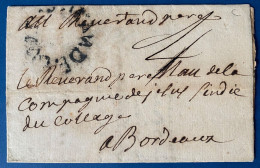 au Reuerand pere
4
le Reuerand pere de la
compagnie de jesus sindic
du collage
a Bordeaux